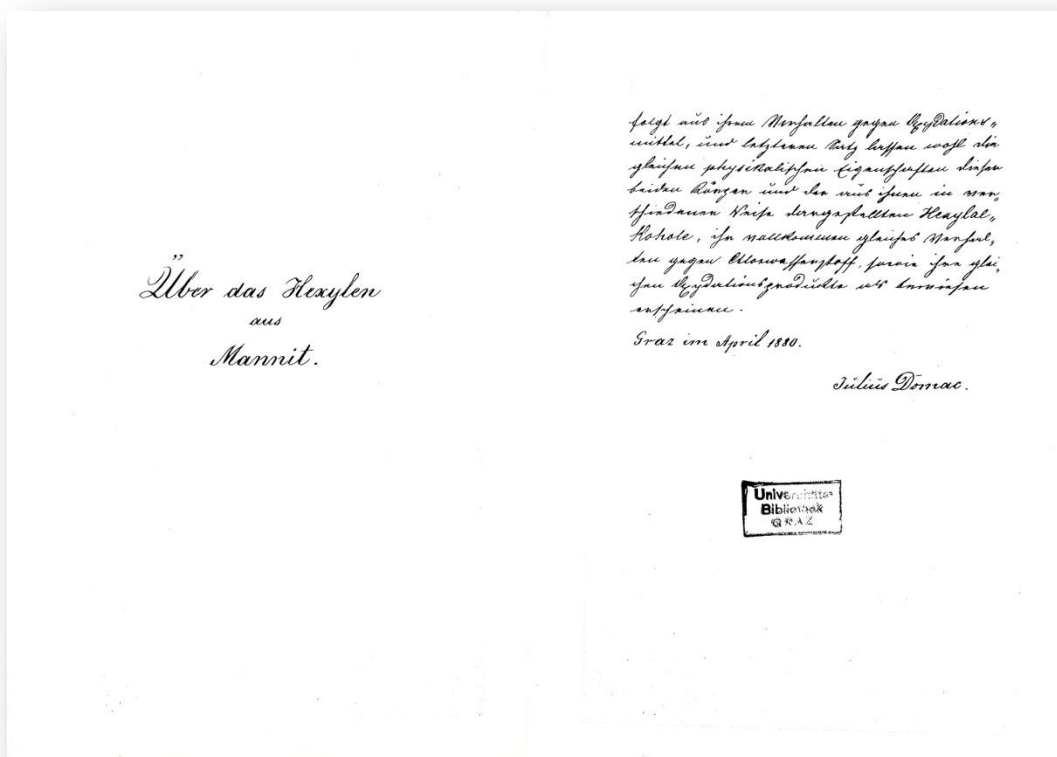 Über das Hexylen
aus
Mannit.
folgt aus ihrem Verhalten gegen Oxydations„
mittel, und letzteren Satz lassen wohl die
gleichen physikalischen Eigenschaften dieser
beiden Körper und der aus ihnen in ver„
schiedener Weise dargestellten Hexylal„
kohole, ihr vollkommen gleiches Verhal„
ten gegen Chlorwasserstoff, sowie ihre glei„
chen Oxydationsprodukte als bewiesen
erscheinen.
Graz im April 1880.
Julius Domac.
Universitäts-
Bibliothek
GRAZ